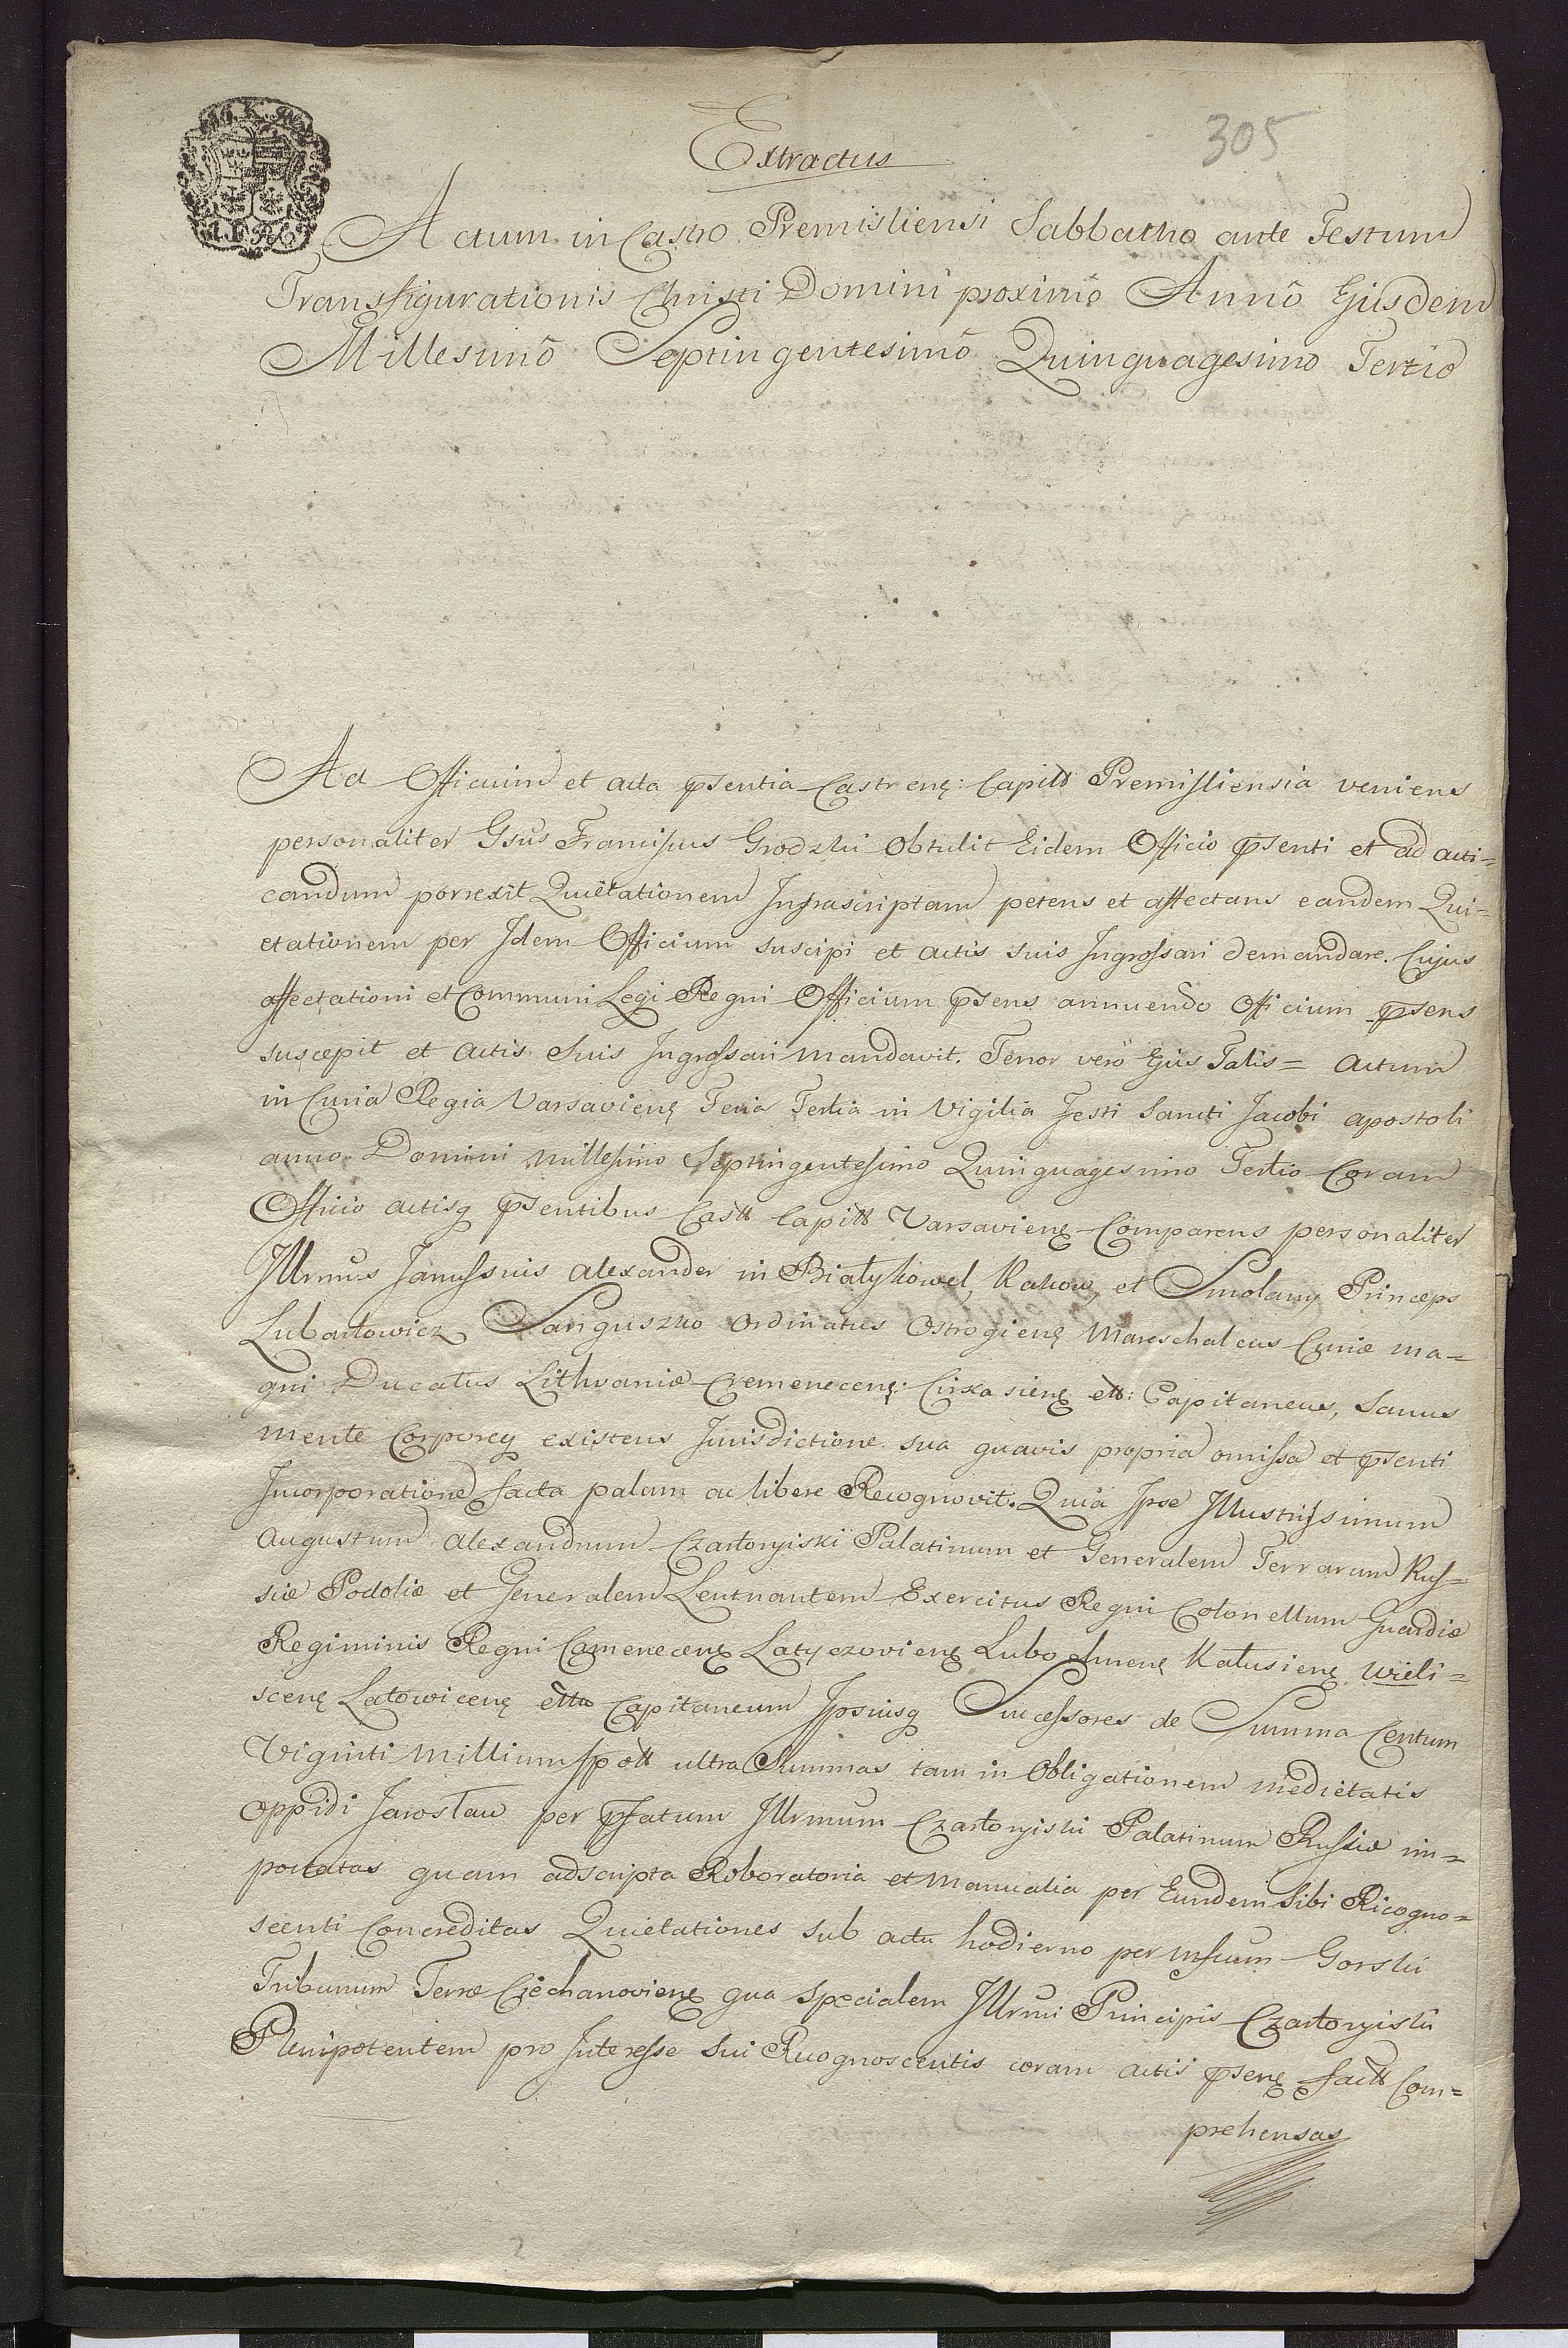 305
Extractus
Actum in Castro Premisliensi Sabbatho ante Festum
Transfigurationis Christi Domini proximo Annô Ejusdem
Millesimô Septingentesimô Quinquagesimo Tertio
Ad Officium et acta pſentia Castrenę: Capitt Premisliensia veniens
personaliter Gsus Franciſcus Grodzki obtulit Eidem Officio pſenti et ad acti=
candum porrexit Quietationem Infrascriptam petens et affectans eandem Qui=
etationem per Idem Officium suscipi et actis suis Ingroſsari demandare. Cujus
affectationi et Communi Legi Regni Officium pſens annuendo Officium pſens
suscepit et Actis Suis Ingroſsari mandavit. Tenor verò Ejus Talis = Actum
in Curia Regia Varsavienę Feria Tertia in Vigilia Festi Sancti Jacobi apostoli
anno Domini Milleſimo Septingenteſimo Quinquagesimo Tertio Coram
Officio actisq pſentibus Castt Capitt Varsavienę Comparens personaliter
Jllrmus Januſsius Alexander in Białykowel, Rakow, et Smolany Princeps
Lubartowicz Sanguszko Ordinatus Ostrogienę Mareschalcus Curiæ ma=
gni Ducatus Lithvaniæ Cremenecenę: Cirkasienę ett: Capitaneus, Sanus
mente Corporeq existens Jurisdictione sua quavis propria omiſsa et pſenti
Incorporatione facta palam ac libere Recognovit. Quia Jpse Jllustriſsimum
Augustum Alexandrum Czartoryiski Palatinum et Generalem Terrarum Ruſ=
siæ Podoliæ et Generalem Leutnantem Exercitus Regni Colonellum Guardiæ
Regiminis Regni Camenecenę Latyczovienę Lubomlnenę Katusienę Wieli=
scenę Latowicenę ettc Capitaneum Jpsiusq Succeſsores de Summa Centum
Viginti Millium fpott ultra Summas tam in Obligationem medietatis
oppidi Jarosław per pfatum Jllrmum Czartoryiski Palatinum Ruſsiæ im=
portatas quam adscripta Roboratoria et Manualia per Eundem Sibi Ricogno=
scenti Concreditas Quietationes sub actu hodierno per Gorski
Tribunum Terræ Ciechanovienę qua Specialem Jllrmi Principis Czartoryiski
Plenipotentem pro Intereſse Sui Recognoscentis coram actis pſenę factt Com=
prehensas